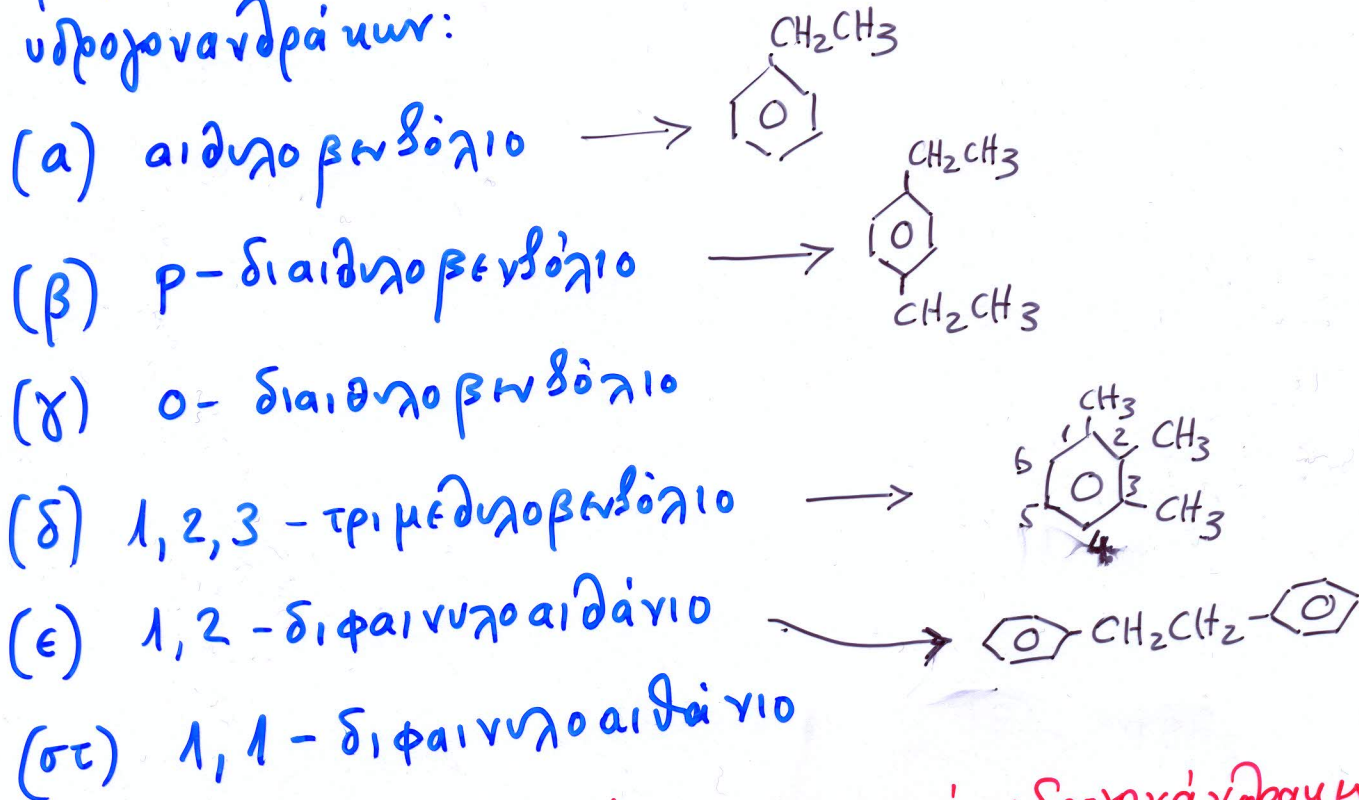 υδρογονανθράκων:
(α) αιθυλοβενζόλιο → CH2CH3
(β) p-διαιθυλοβενζόλιο → CH2CH3
CH2CH3
(γ) o-διαιθυλοβενζόλιο
(δ) 1,2,3-τριμέθυλοβενζόλιο → CH3
1 2 CH3
6 3 CH3
5 4
(ε) 1,2-διφαινυλοαιθάνιο → CH2CH2
(στ) 1,1-διφαινυλοαιθάνιο